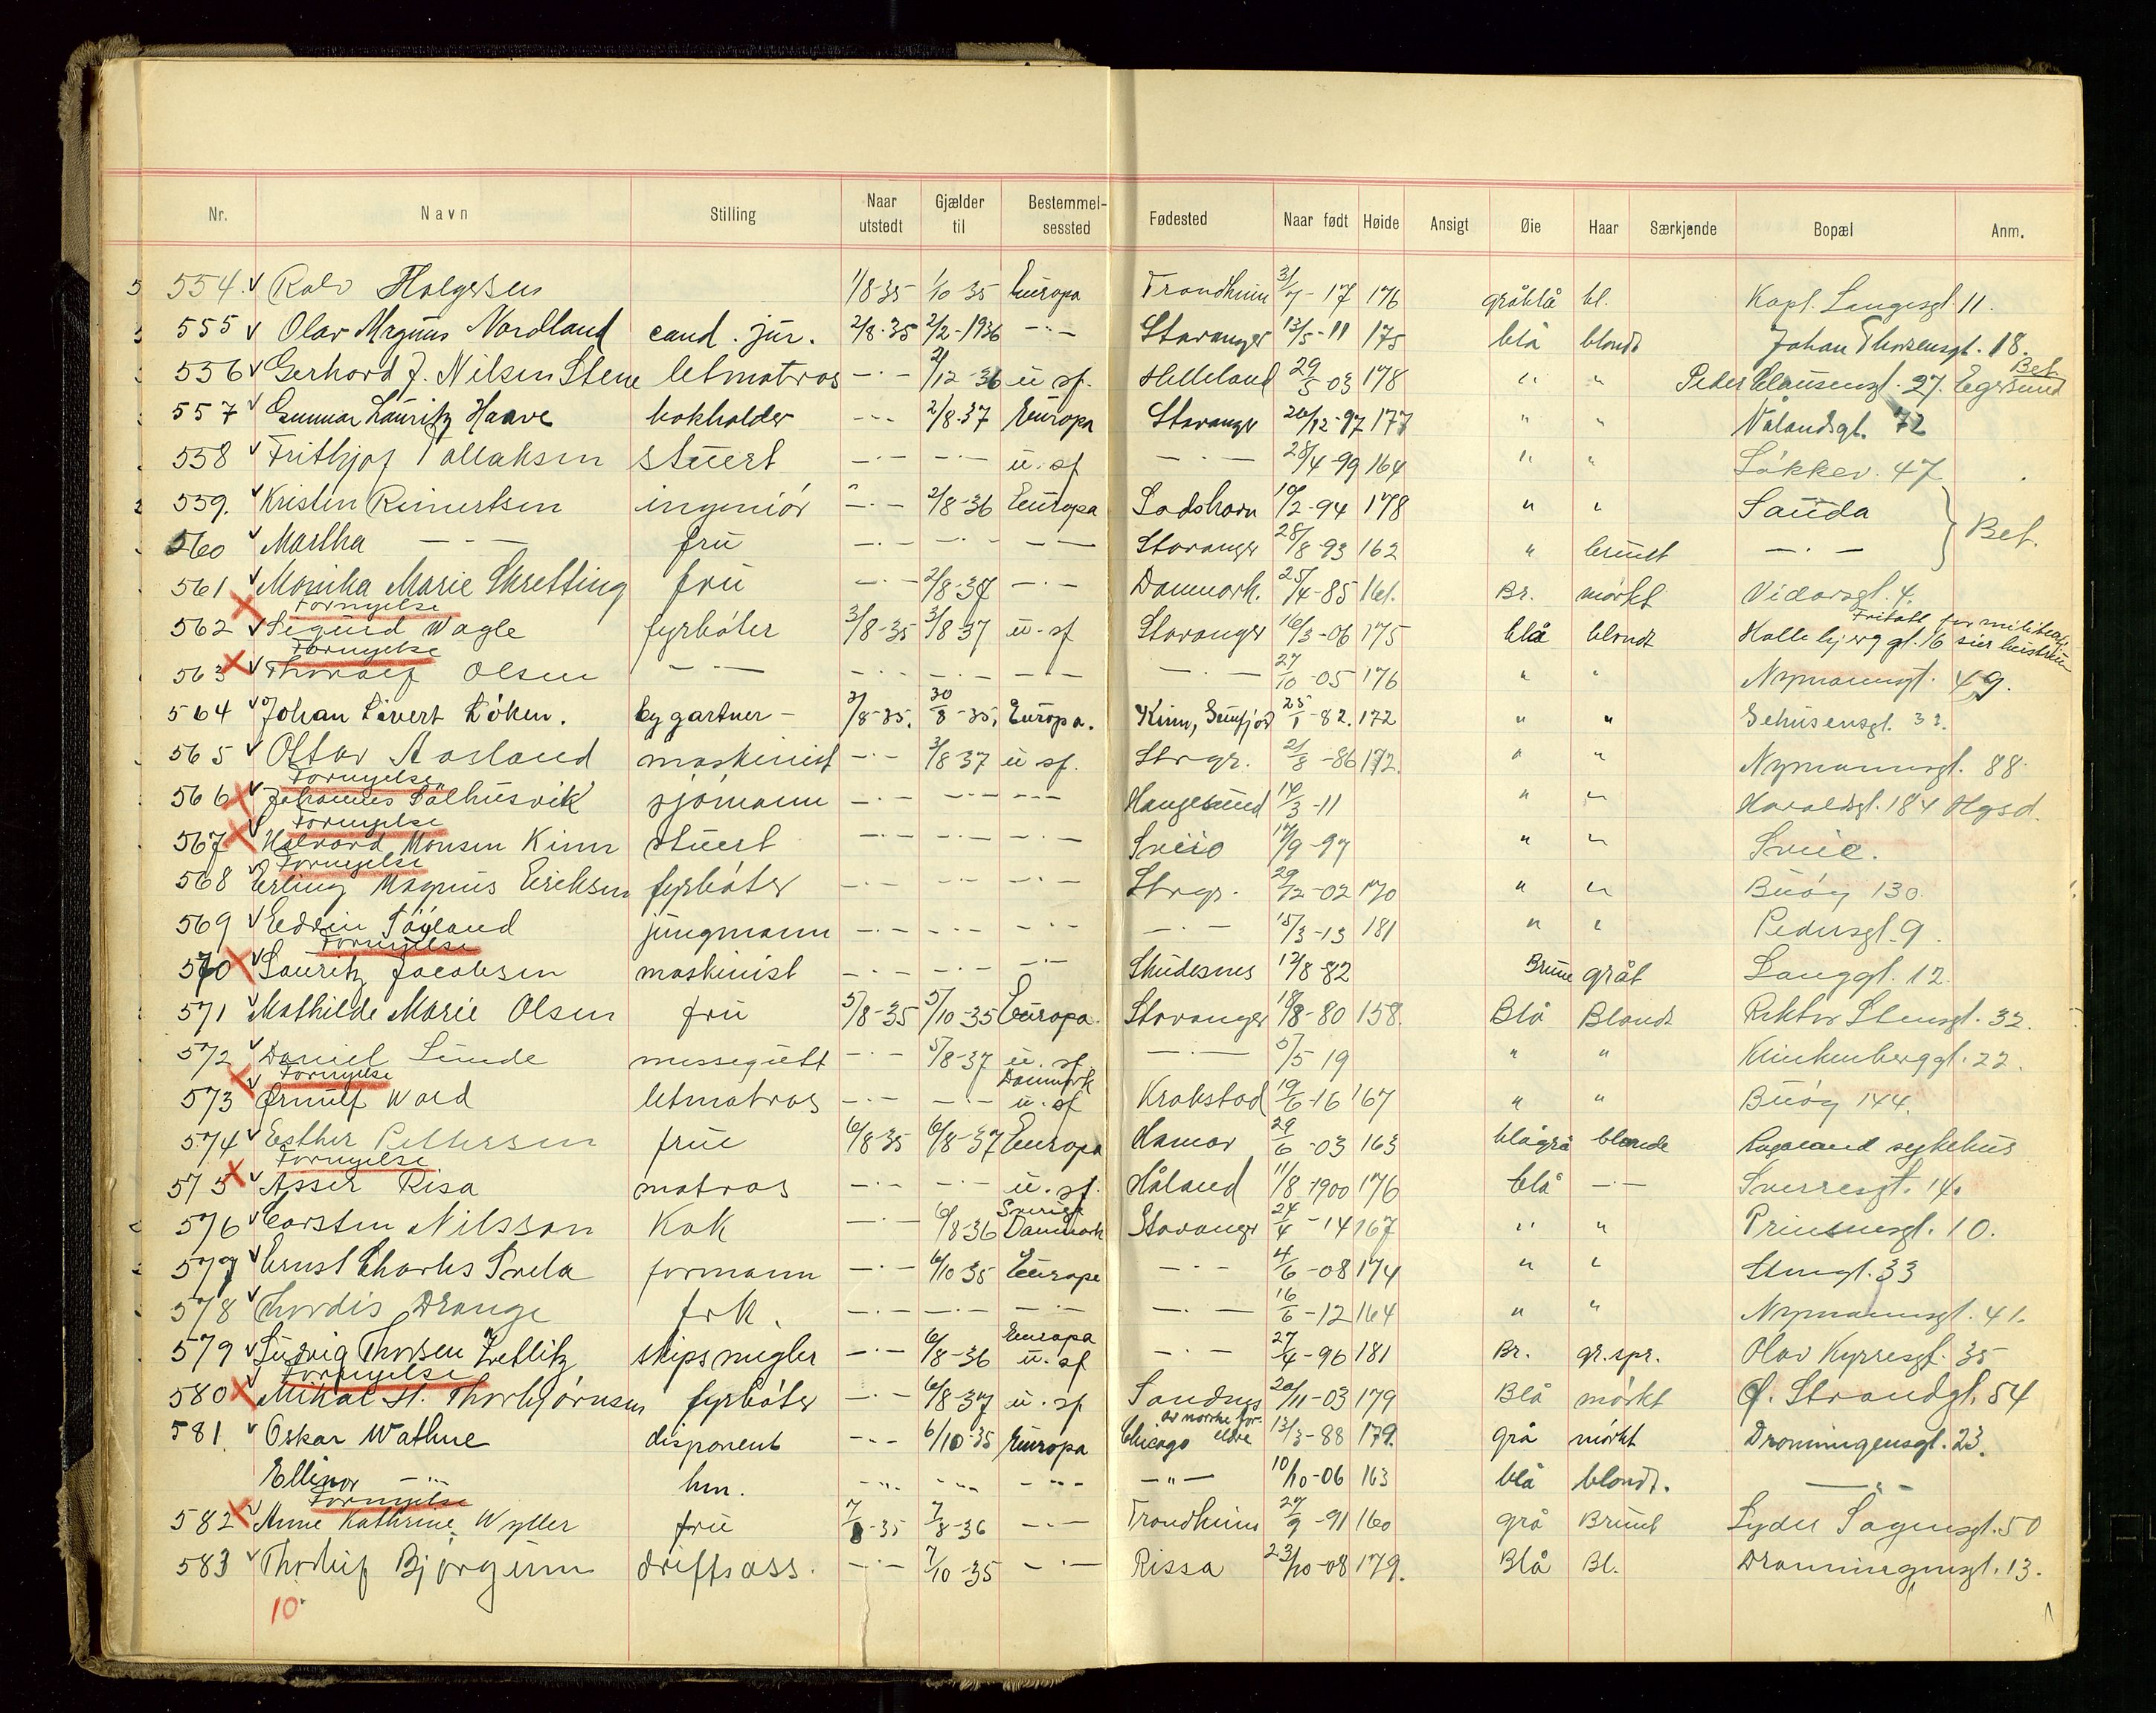 Nr. Navn Stilling Naar utstedt Gjælder til Bestemmel-sessted Fødested Naar født Høide Ansigt Øie Haar Særkjende Bopæl Anm.
554. Rolv Holgersen 1/8 35 1/10 35 Europa Trondheim 31/7 - 17 176 gråblå bl. Kapt. Langesgt. 11.
555 Olav Magnus Nordland cand. jur. 2/8. 35 2/2 - 1936 -"- Stavanger 13/5 - 11 175 blå blondt Johan Thorsensgt. 18.
556 Gerhard J. Nilsen Stene letmatros -"- 2/12 - 36 u. sf. Helleland 29/5 - 03 178 " " Peder Clausensgt. 27. Egersund Bet.
557 Gunnar Lauritz Haave bokholder -"- 2/8. 37 Europa Stavanger 26/12 - 97 177 " " Vålandsgt. 72
558 Frithjof Tollaksen stuert -"- -"- u. sf -"- 28/4 - 99 164 " " Løkkev. 47
559. Kristen Reinertsen ingeniør -"- 2/8 - 36 Europa 10/2 - 94 178 " " Sauda
560 Martha -"- fru -"- -"- -"- Stavanger 28/8 - 93 162 " brunt -"- Bet.
561 Monika Marie Skretting fru -"- 2/8 - 37 -"- Danmark. 25/4 - 85 161. Br. mørkt Vidarsgt. 4.
Fornyelse
562 Sigurd Wagle fyrbøter 3/8 - 35 3/8 37 u. sf Stavanger 16/3 - 06 175 blå blondt Hallebjerggt. 16 Fritatt for militær
Fornyelse
563 Thoralf Olsen -"- -"- -"- -"- -"- 27/10 - 05 176 " " Nymannsgt. 49.
564 Johan Sivert Løken. bygartner - 3/8 - 35. 30/8 - 35. Europa. Kinn, Sunfjor 25/1 - 82. 172 " "
565 Ottar Aasland maskinist -"- 3/8 37 u sf. Stvgr. 21/8 - 86 172. " " Nymannsgt. 88
Fornyelse
566 Johannes Sålhusvik sjømann -"- -"- -"- Haugesund 14/3 - 11 " " Haraldsgt. 184 Hgsd.
Fornyelse
567 Halvard Monsen Kinn stuert -"- -"- -"- Sveio 17/9 - 97 " " Sveio.
Fornyelse
568 Erling Magnus Eriksen fyrbøter -"- -"- -"- Stvgr. 29/12 - 02 170 " " Buøy 130.
569 Edvin Tøgland jungmann -"- -"- -"- -"- 15/3 - 13 181 " " Pedersgt. 9.
Fornyelse
570 Lauritz Jacobsen maskinist -"- -"- -"- Skudesnes 12/8 - 82 Brune gråt Langgt. 12.
571 Mathilde Marie Olsen fru 5/8 - 35 5/10 - 35 Europa. Stavanger 18/8 - 80 158. Blå Blondt Rektor Stensgt. 32.
572 Daniel Lunde messegutt -"- 5/8 - 37 u. sf. -"- 5/5 19 " " Klinkenberggt. 22.
Fornyelse
573 Ørnulf Wold letmatros -"- -"- Danmark u. sf Krakstad 19/6 - 16 167 " " Buøy 144.
574 Esther Pettersen frue 6/8 - 35 6/8 - 37 Europa Hamar 29/6 - 03 163 blågrå blonde Rogaland sykehus
Fornyelse
575 Asser Risa matros -"- -"- u. sf. Håland 11/8 1900 176 blå -"- Sverresgt. 14.
576 Carsten Nilsson Kok -"- 6/8 36 Sverige Danmark Stavanger 24/4 - 14 167 " " Prinsensgt. 10.
577 Ernst Charles Svela formann -"- 6/10 35 Europa -"- 4/6 - 08 174 " " Stengt. 33
578 Thordis Drange frk. -"- -"- -"- -"- 16/6 - 12 164 " " Nymannsgt. 41.
579 Ludvig Thorsen Zetlitz skipsmegler -"- 6/8 - 36 Europa u. sf -"- 27/4 - 96 181 Br. gr. spr. Olav Kyrresgt. 35
Fornyelse
580 Mikal St. Thorbjørnsen fyrbøter -"- 6/8 - 37 u. sf Sandnes 20/11 - 03 179 Blå mørkt Ø. Strandgt. 54
581. Oskar Wathne disponent -"- 6/10 - 35 Europa Chicago av norske foreldre 13/3 - 88 179. grå mørkt Dronningensgt. 23.
Ellinor -"- hn. -"- -"- -"- -"- 10/10 - 06 163 blå blondt. -"-
Fornyelse
582 Anne Kathrine Wyller fru 7/8 - 35 7/8 - 36 -"- Trondheim 27/9 - 91 160 grå Brunt Lyder Sagensgt. 50
583 Thorleif Bjørgum driftsass. -"- 7/10 - 35 -"- Rissa 23/10 - 08 179. Blå Bl. Dronningensgt. 13.
10